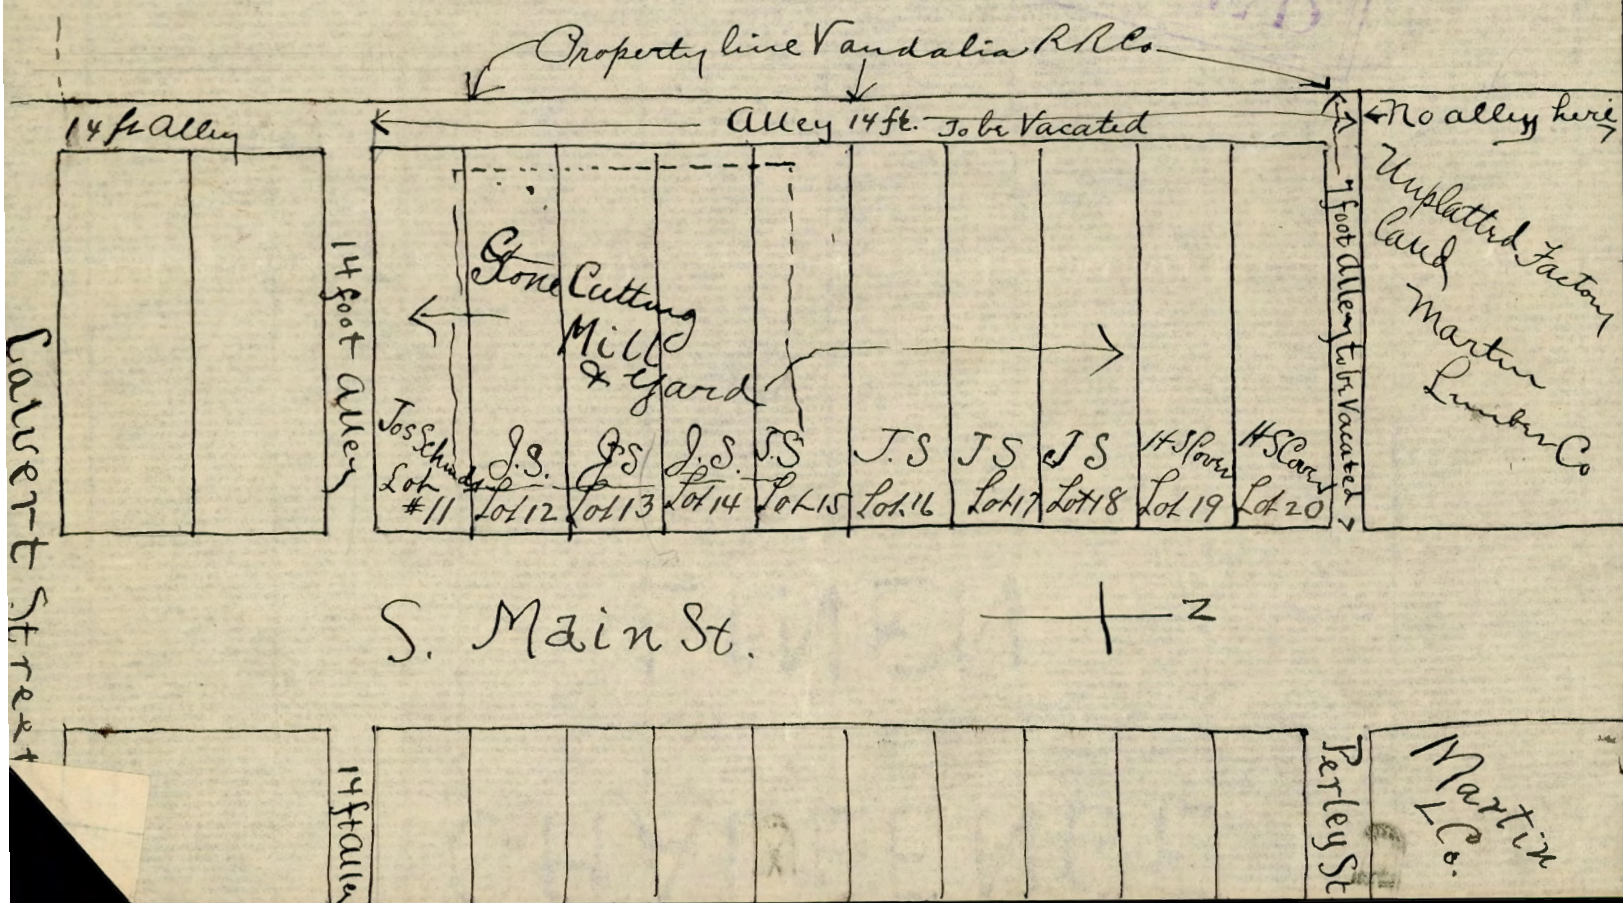 Property line Vandalia R R Co
14 ft Alley
Alley 14 ft. To be Vacated
No alley here
7 foot alley to be Vacated
Unplattrd Factory
Land
Martin
Lumber Co
14 foot Alley
Stone Cutting
Mill
& Yard
Jos Schind
Lot
#11
J.S.
Lot 12
J S
Lot 13
J.S.
Lot 14
J.S
Lot 15
J.S
Lot 16
J S
Lot 17
J S
Lot 18
H S Cover
Lot 19
H S Cover
Lot 20
Calvert Street
S. Main St.
N
14 ft Alley
Perley St
Martin
L Co.